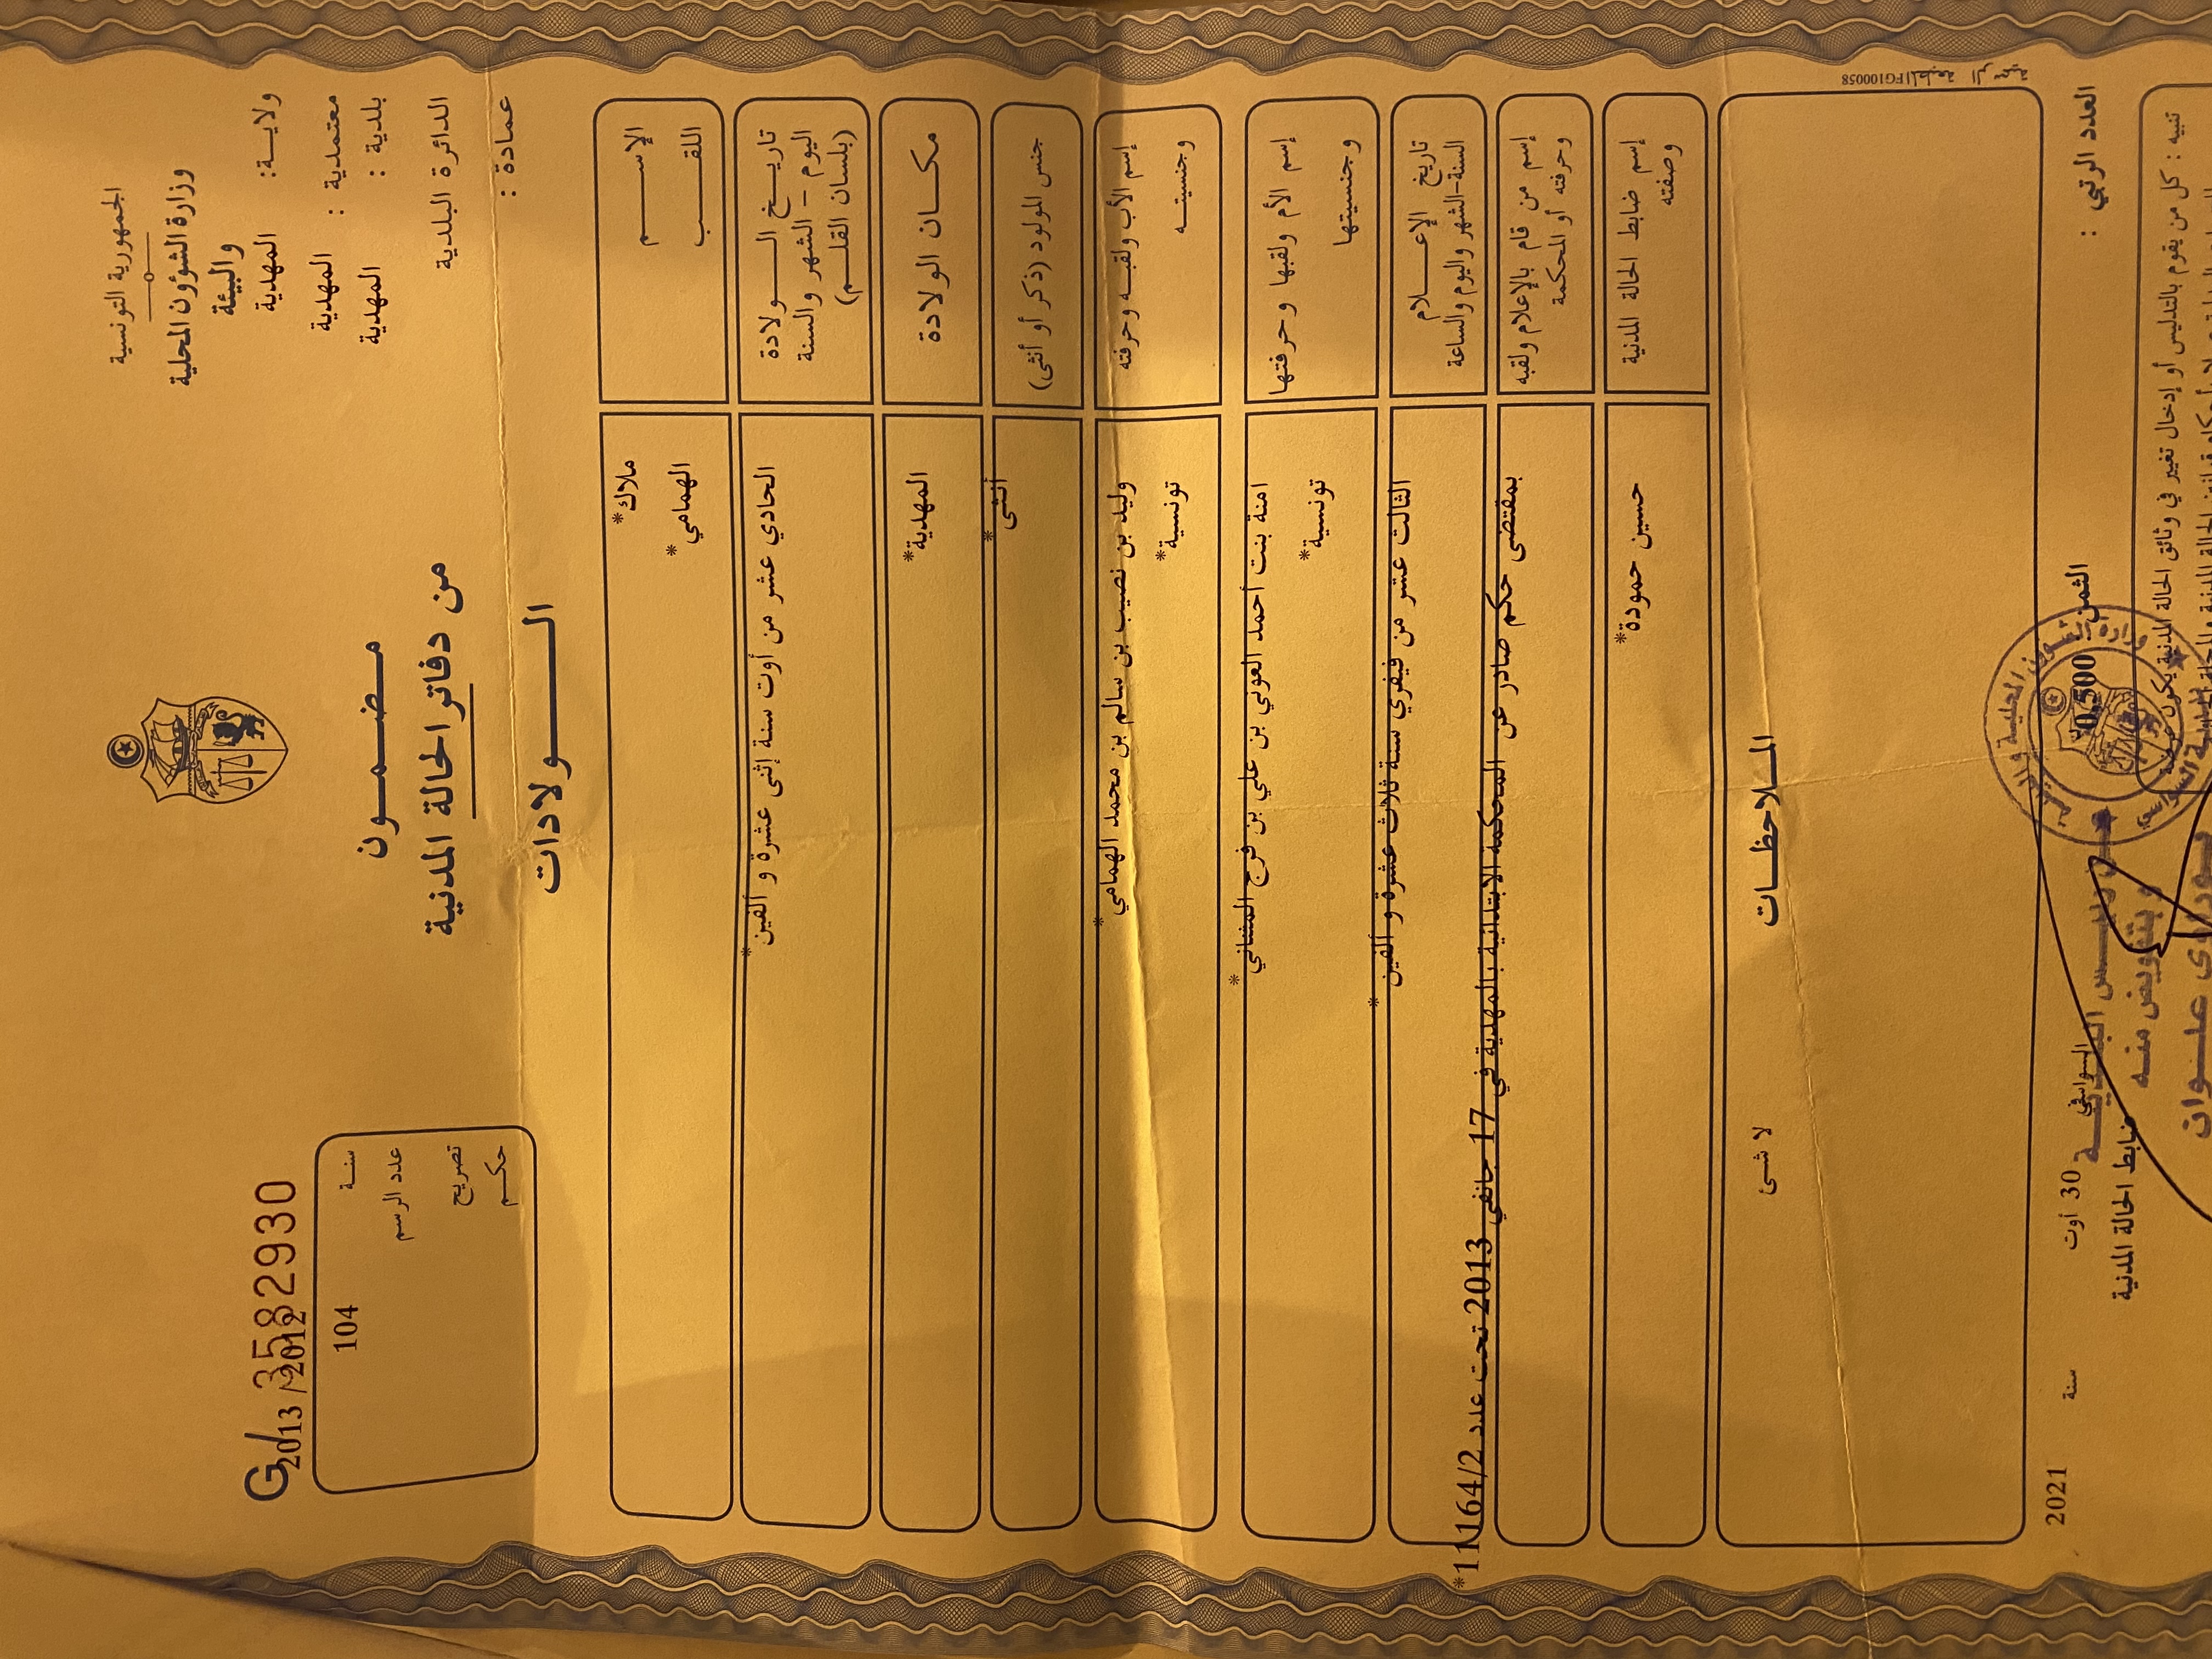 الجمهورية التونسية
وزارة الشؤون المحلية
والبيئة
ولايــة: المهدية
معتمدية : المهدية
بلدية : المهدية
الدائرة البلدية
عمادة :
مـــضـــمـــون
من دفاتر الحالة المدنية
الـــــولادات
G/ 3582930
2013 / 2012
سنة
104
عدد الرسم
تصريح
حكم
الإســـــم
ملاك*
اللقـــــب
الهمامي*
تاريـــخ الـــــولادة
اليوم - الشهر والسنة
(بلسان القلـــم)
الحادي عشر من أوت سنة إثنى عشرة و ألفين*
مكـــان الولادة
المهدية*
جنس المولود (ذكر أو أنثى)
أنثى*
إسم الأب ولقبـــه وحرفته
وليد بن نصيب بن سالم بن محمد الهمامي*
وجنسيتـــه
تونسية*
إسم الأم ولقبها وحرفتها
امنة بنت أحمد العوني بن علي بن فرج المثناني*
وجنسيتها
تونسية*
تاريخ الإعـــــلام
السنة-الشهر واليوم والساعة
الثالث عشر من فيفري سنة ثلاث عشرة و ألفين*
إسم من قام بالإعلام ولقبه
وحرفته أو المحكمة
بمقتضى حكم صادر عن المحكمة الابتدائية بالمهدية في 17 جانفي 2013 تحت عدد 11164/2*
إسم ضابط الحالة المدنية
وصفته
حسين حمودة*
المـــلاحظـــات
لا شئ
المطبعة الرسمية FG100058
العدد الرتبي :
الثمن 0,500
السواسي
30 أوت
سنة
2021
ضابط الحالة المدنية
عن رئيس البلديـــة
و بتفويض منـــه
تنبيه : كل من يقوم بالتدليس أو إدخال تغيير في وثائق الحالة المدنية يكون عرضة